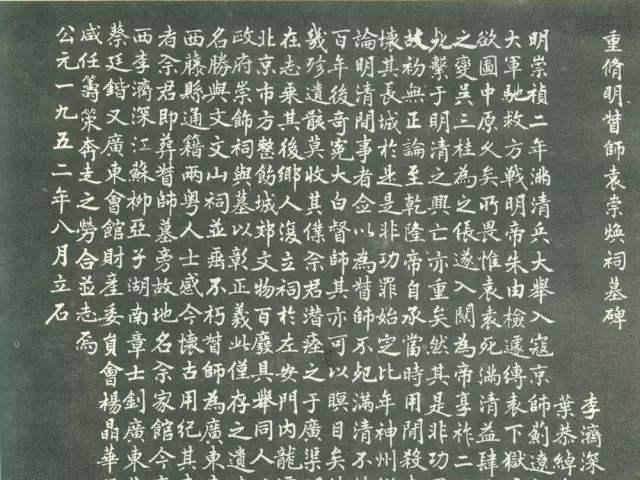 重脩明督師袁崇煥祠墓碑
李濟深
葉恭綽
明崇禎二年滿清兵大舉入寇京師薊遼
大軍馳救方戰明帝朱由檢遽縛袁下獄
欲圖中原久矣所畏惟袁袁死滿清益肆
之變吳三桂為之倀遂入關為帝享祚二
死繫于明清之興亡亦重矣然其是非功
故初無正論至乾隆帝自承當時用間殺
壞其長城於是是非功罪始定比年神州
論明清間事者僉以為督師不死滿清不
百年後奇冤大白督師其亦可以瞑目矣
幾殄遺骸莫收其僕佘君潛瘞之于廣渠
在志乘其後鄉人復立祠於左安門內龍
北京市方整飭城郊文物百廢具舉同人
政府崇飾祠與墓以彰正義此僅存之遺
名勝與文文山祠並垂不朽督師為廣東
西藤縣通籍兩粵人士感今懷古用紀其
者佘君即葬督師墓旁故地名佘家館今
西李濟深江蘇柳亞子湖南章士釗廣東
蔡廷鍇又廣東會館財產委員會楊晶華
咸任籌策奔走之勞合並志焉
公元一九五二年八月立石